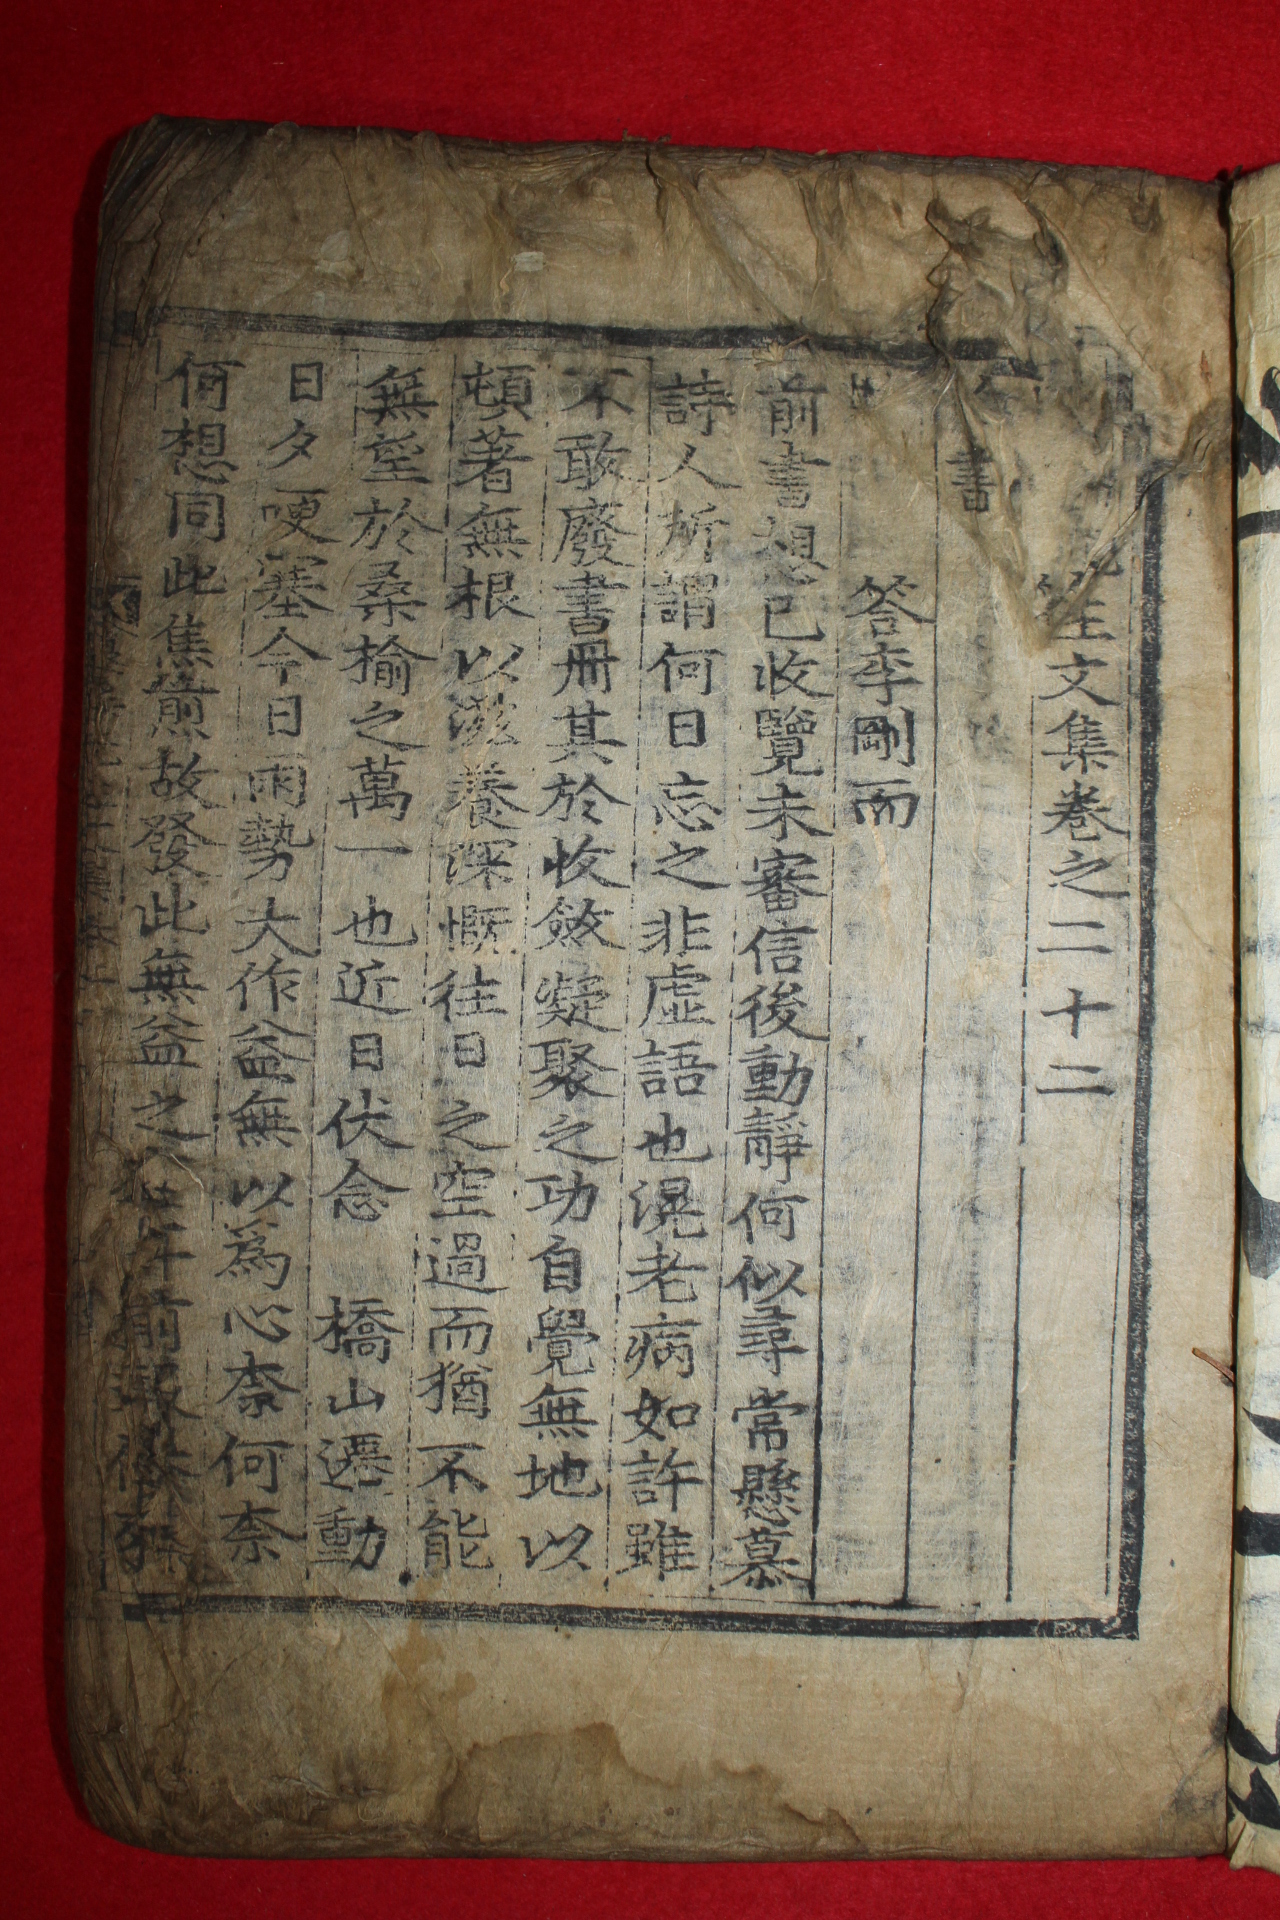 先生文集卷之二十二
書
答李剛而
前書想已收覽未審信後動靜何似尋常懸慕
詩人所謂何日忘之非虛語也滉老病如許雖
不敢廢書冊其於收斂凝聚之功自覺無地以
頓著無根以滋養深慨往日之空過而猶不能
無望於桑榆之萬一也近日伏念 橋山遷動
日夕哽塞今日雨勢大作益無以爲心柰何柰
何想同此焦煎故發此無益之 年前